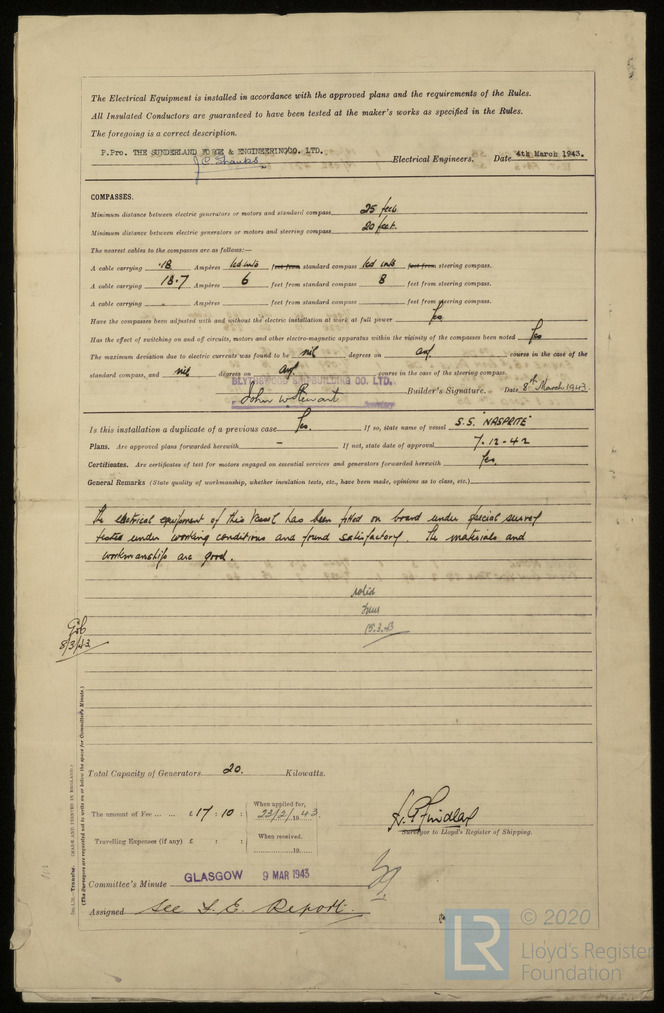 The Electrical Equipment is installed in accordance with the approved plans and the requirements of the Rules.
All Insulated Conductors are guaranteed to have been tested at the maker's works as specified in the Rules.
The foregoing is a correct description.
P.Pro. THE SUNDERLAND FORGE & ENGINEERING CO. LTD.
J.C. Shanks Electrical Engineers. Date 4th March 1943.
COMPASSES.
Minimum distance between electric generators or motors and standard compass 25 feet
Minimum distance between electric generators or motors and steering compass 20 feet.
The nearest cables to the compasses are as follows:—
A cable carrying .18 Ampères led into feet from standard compass led into feet from steering compass.
A cable carrying 18.7 Ampères 6 feet from standard compass 8 feet from steering compass.
A cable carrying - Ampères feet from standard compass feet from steering compass.
Have the compasses been adjusted with and without the electric installation at work at full power Yes
Has the effect of switching on and off circuits, motors and other electro-magnetic apparatus within the vicinity of the compasses been noted Yes
The maximum deviation due to electric currents was found to be nil degrees on any course in the case of the
standard compass, and nil degrees on any course in the case of the steering compass.
BLYTHSWOOD SHIPBUILDING CO. LTD.
John W. Stewart Secretary Builder's Signature. Date 8th March 1943.
Is this installation a duplicate of a previous case Yes. If so, state name of vessel S.S. "NASPRITE"
Plans. Are approved plans forwarded herewith - If not, state date of approval 7.12.42
Certificates. Are certificates of test for motors engaged on essential services and generators forwarded herewith Yes.
General Remarks (State quality of workmanship, whether insulation tests, etc., have been made, opinions as to class, etc.)
The electrical equipment of this vessel has been fitted on board under special survey
tested under working conditions and found satisfactory. The materials and
workmanship are good.
15.3.43
8/3/43
Total Capacity of Generators 20. Kilowatts.
The amount of Fee ... ... £17 : 10 : When applied for, 22/2/1943.
Travelling Expenses (if any) £ : : When received, 19
H. P. Findlay
Surveyor to Lloyd's Register of Shipping.
Committee's Minute GLASGOW 9 MAR 1943
Assigned See F.E. Report.
(The Surveyors are requested not to write on or below the space for Committee's Minute.)
(MADE AND PRINTED IN ENGLAND.)
Transfer.
LR © 2020
Lloyd's Register
Foundation